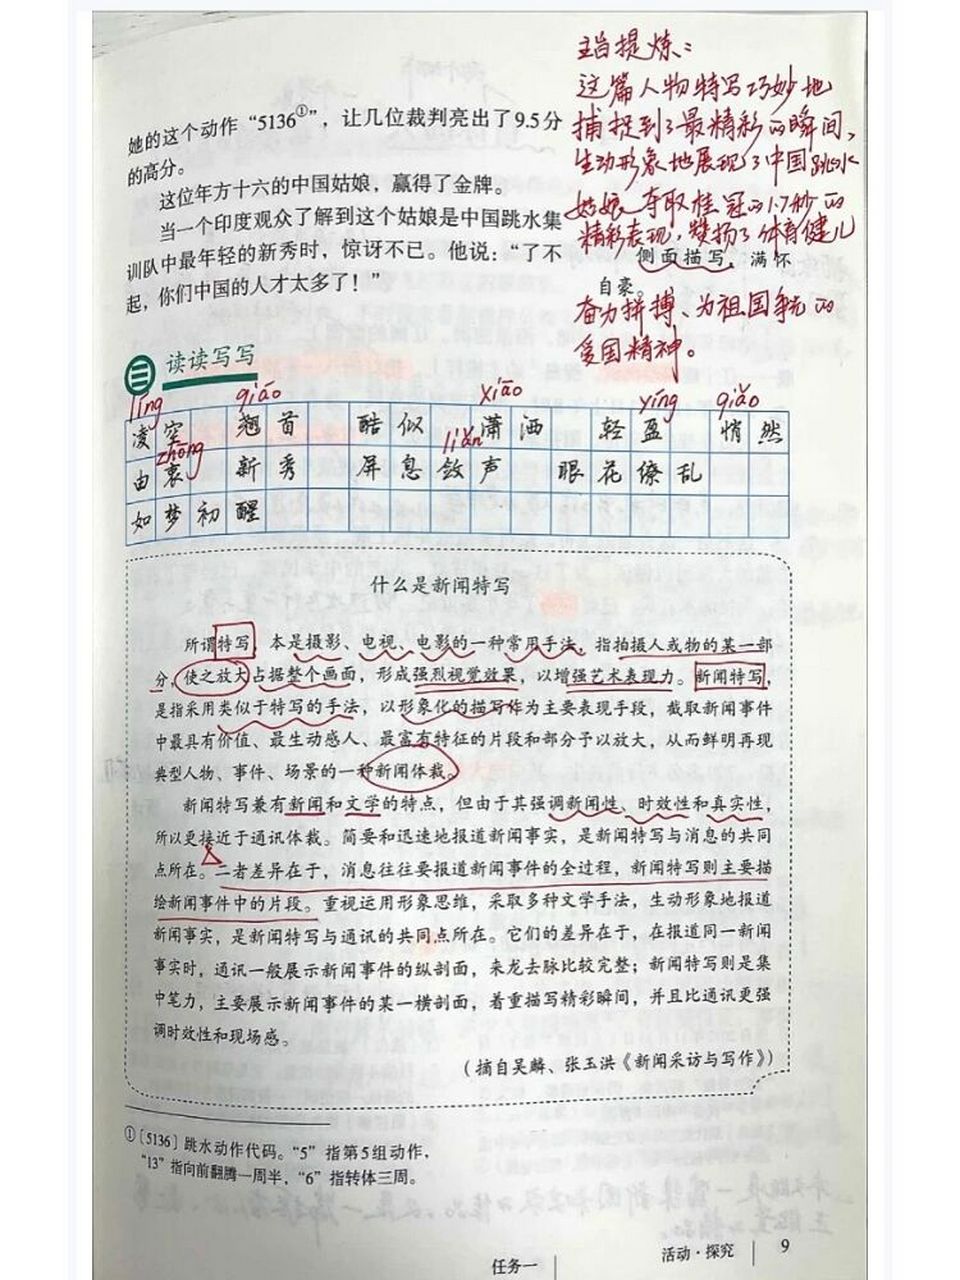 主旨提炼：
这篇人物特写巧妙地
捕捉到了最精彩的瞬间，
生动形象地展现了中国跳水
姑娘夺取桂冠的1.7秒的
精彩表现，赞扬了体育健儿
奋力拼搏、为祖国争光的
爱国精神。
她的这个动作“5136①”，让几位裁判亮出了9.5分
的高分。
这位年方十六的中国姑娘，赢得了金牌。
当一个印度观众了解到这个姑娘是中国跳水集
训队中最年轻的新秀时，惊讶不已。他说：“了不
起，你们中国的人才太多了！”
侧面描写，满怀
自豪。
读读写写
líng qiáo xiāo yíng qiǎo
凌空 翘首 酷似 潇洒 轻盈 悄然
zhōng liǎn
由衷 新秀 屏息敛声 眼花缭乱
如梦初醒
什么是新闻特写
所谓特写，本是摄影、电视、电影的一种常用手法，指拍摄人或物的某一部
分，使之放大占据整个画面，形成强烈视觉效果，以增强艺术表现力。新闻特写，
是指采用类似于特写的手法，以形象化的描写作为主要表现手段，截取新闻事件
中最具有价值、最生动感人、最富有特征的片段和部分予以放大，从而鲜明再现
典型人物、事件、场景的一种新闻体裁。
新闻特写兼有新闻和文学的特点，但由于其强调新闻性、时效性和真实性，
所以更接近于通讯体裁。简要和迅速地报道新闻事实，是新闻特写与消息的共同
点所在。二者差异在于，消息往往要报道新闻事件的全过程，新闻特写则主要描
绘新闻事件中的片段。重视运用形象思维，采取多种文学手法，生动形象地报道
新闻事实，是新闻特写与通讯的共同点所在。它们的差异在于，在报道同一新闻
事实时，通讯一般展示新闻事件的纵剖面，来龙去脉比较完整；新闻特写则是集
中笔力，主要展示新闻事件的某一横剖面，着重描写精彩瞬间，并且比通讯更强
调时效性和现场感。
（摘自吴麟、张玉洪《新闻采访与写作》）
①［5136］跳水动作代码。“5”指第5组动作，
“13”指向前翻腾一周半，“6”指转体三周。
任务一
活动·探究 9